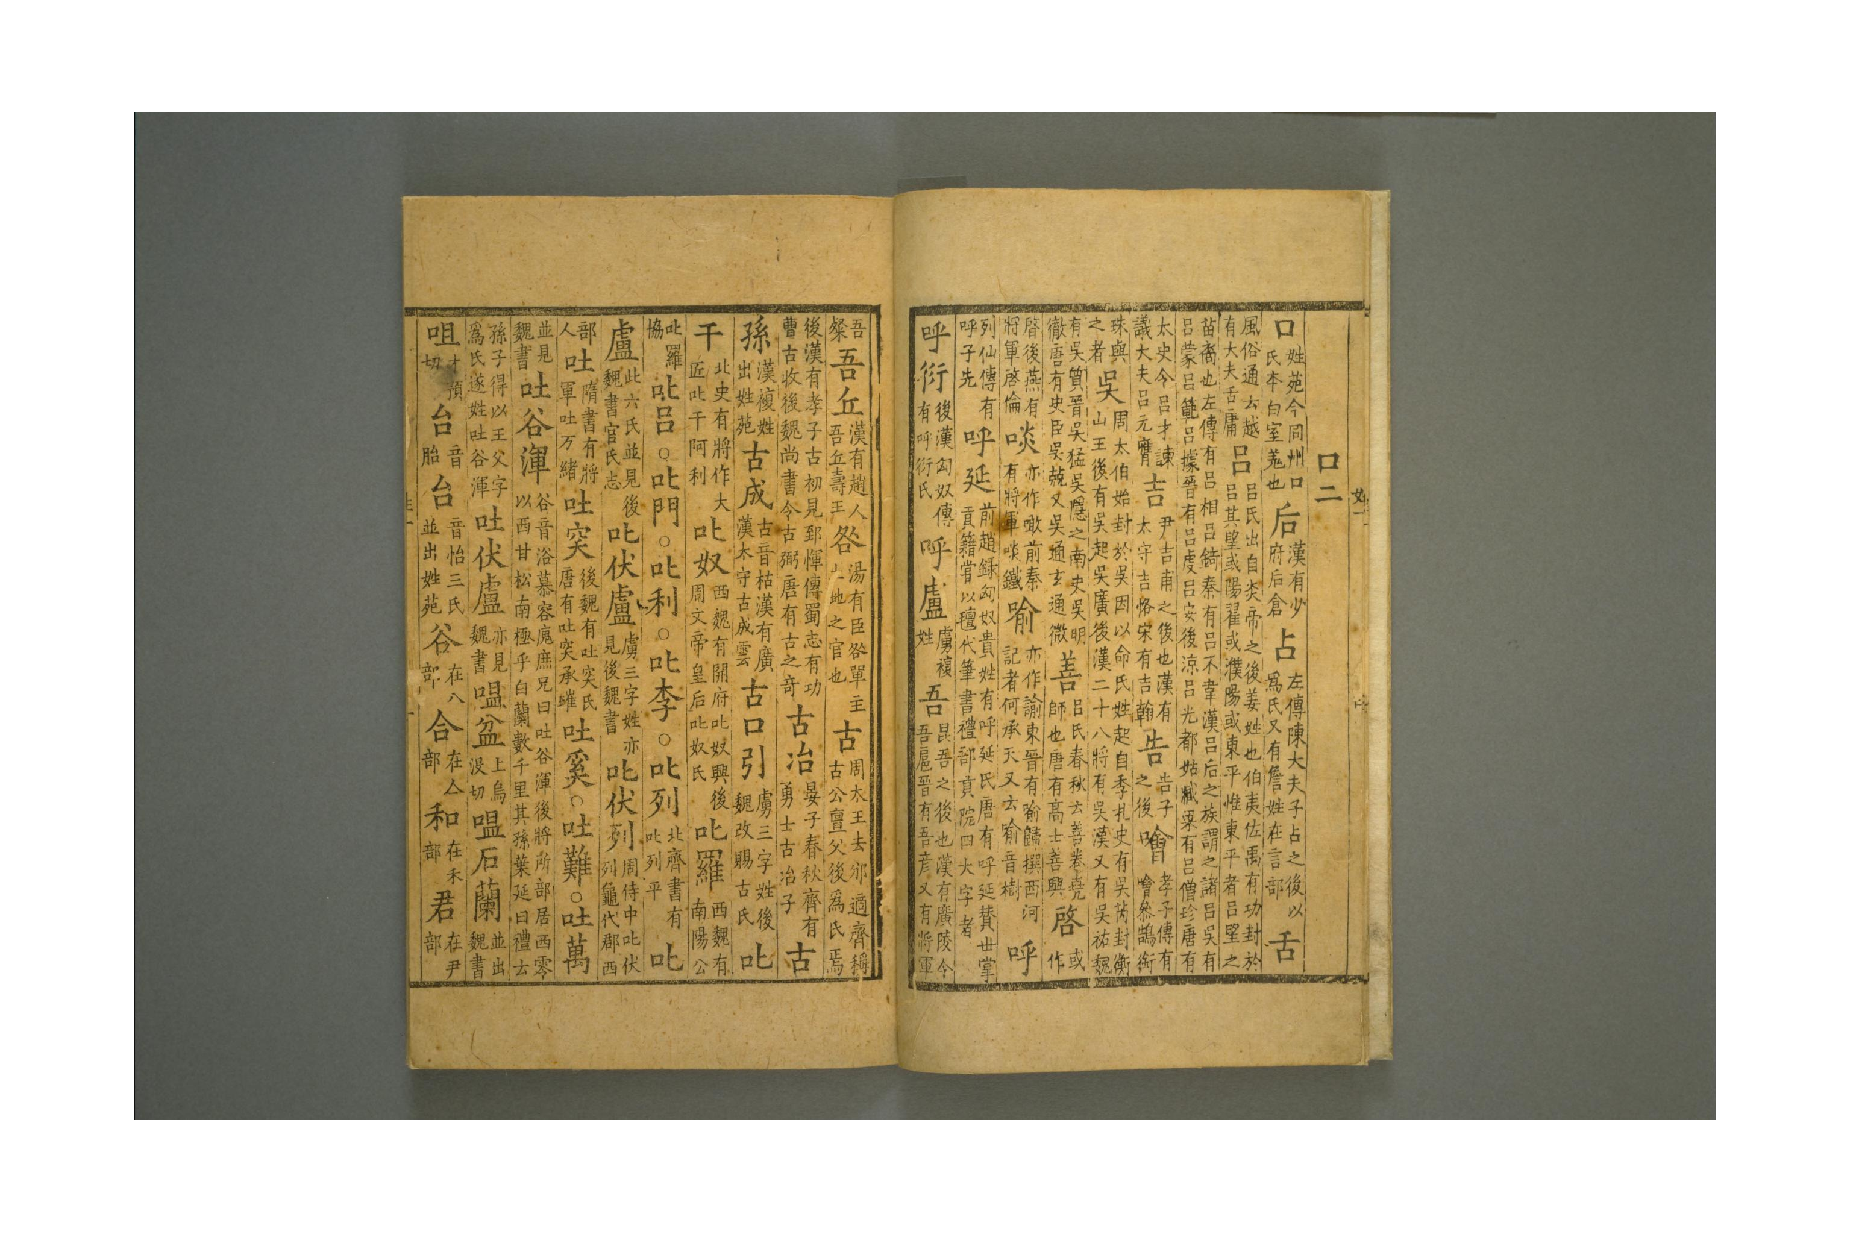 口二
口姓苑今同州口氏本白室羗也后漢有少府后倉占左傳陳大夫子占之後以爲氏又有詹姓在言部舌
風俗通云越有大夫舌庸呂呂氏出自炎帝之後姜姓也伯夷佐禹有功封於呂其望或陽翟或濮陽或東平惟東平者呂望之
苗裔也左傳有呂相呂錡秦有呂不韋漢呂后之族謂之諸呂吳有呂蒙呂範呂據晉有呂虔呂安後涼呂光都姑臧梁有呂僧珍唐有
太史令呂才諫議大夫呂元膺吉尹吉甫之後也漢有太守吉恪宋有吉翰告告子之後噲孝子傳有噲參鵠銜
珠與之者吳周太伯始封於吳因以命氏姓起自季札史有吳芮封衡山王後有吳起吳廣後漢二十八將有吳漢又有吳祐魏
有吳質晉吳猛吳隱之南史吳明徹唐有史臣吳兢又吳通玄通微善呂氏春秋云善卷堯師也唐有高士善興啓或作
啓後燕有將軍啓倫啖亦作噉前秦有將軍啖鐵喻亦作諭東晉有喻歸撰西河記者何承天又云喻音樹呼
列仙傳有呼子先呼延前趙録匈奴貴姓有呼延氏唐有呼延賛世掌貢籍常以擅代筆書禮部貢院四大字者
呼衍後漢匈奴傳有呼衍氏呼盧虜複姓吾昆吾之後也漢有廣陵令吾扈晉有吾彦又有將軍
吾粲吾丘漢有趙人吾丘壽王咎湯有臣咎單主土地之官也古周太王去邠適齊稱古公亶父後爲氏焉
後漢有孝子古初見郅惲傳蜀志有功曹古牧後魏尚書令古弼唐有古之奇古冶晏子春秋齊有勇士古冶子古
孫漢複姓出姓苑古成古音枯漢有廣漢太守古成雲古口引虜三字姓後魏改賜古氏叱
干北史有將作大匠叱干阿利叱奴西魏有開府叱奴興後周文帝皇后叱奴氏叱羅西魏有南陽公
叱羅協叱呂○叱門○叱利○叱李○叱列北齊書有叱列平叱
盧此六氏並見後魏書官氏志叱伏盧虜三字姓亦見後魏書叱伏列周侍中叱伏列龜代郡西
部人吐隋書有將軍吐万緒吐突後魏有吐突氏唐有吐突承璀吐奚○吐難○吐萬
並見魏書吐谷渾谷音浴慕容廆庶兄曰吐谷渾後將所部居西零以西甘松南極乎白蘭數千里其孫葉延曰禮云
孫子得以王父字爲氏遂姓吐谷渾吐伏盧亦見魏書嗢盆上烏没切嗢石蘭並出魏書
咀才預切台音胎台音怡三氏並出姓苑谷在八部合在亼部和在禾部君在尹部